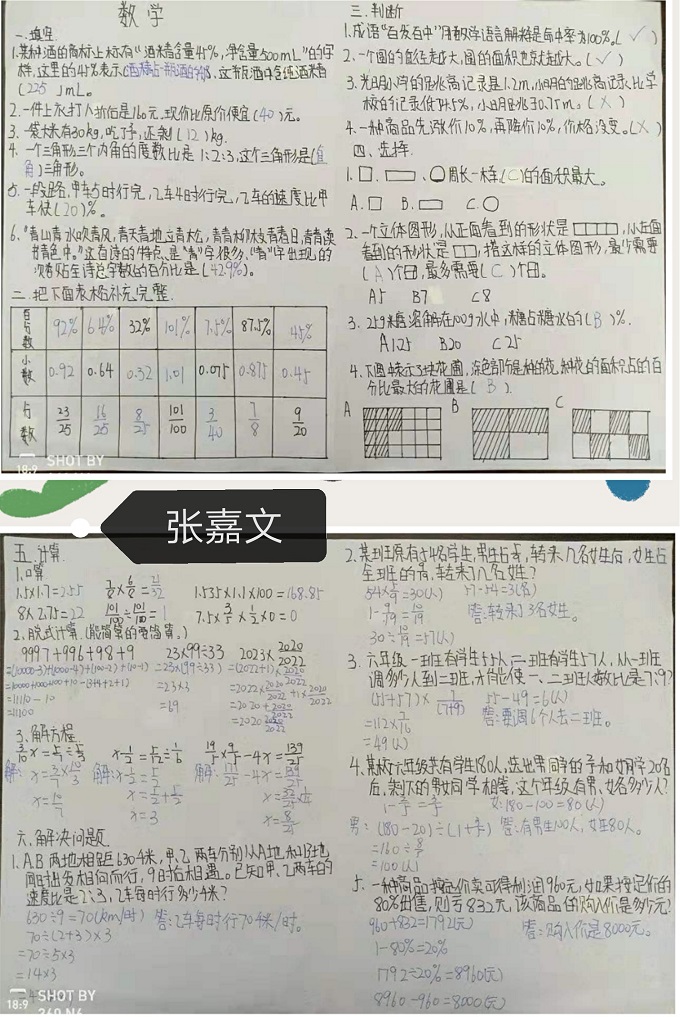 数学
一.填空.
1.某种酒的商标上标有“酒精含量45%,净含量500mL”的字
样,这里的45%表示(酒精占一瓶酒的45%),这瓶酒中含纯酒精
(225)mL。
2.一件上衣打八折后是160元,现价比原价便宜(40)元。
3.一袋大米有30kg,吃了 ,还剩(12)kg.
4.一个三角形三个内角的度数比是1:2:3,这个三角形是(直
角)三角形。
5.一段路,甲车5时行完,乙车4时行完,乙车的速度比甲
车快(20)%。
6.“青山青水吹青风,青天青地立青松,青青柳枝青春日,青青
青色中。”这首诗的特点是“青”字很多,“青”字出现的
次数占全诗总字数的百分比是(42.9%)。
二.把下面表格补充完整.
百分数 92% 64% 32% 101% 7.5% 87.5% 45%
小数 0.92 0.64 0.32 1.01 0.075 0.875 0.45
分数 23/25 16/25 8/25 101/100 3/40 7/8 9/20
三.判断
1.成语“百发百中”用数学语言解释是命中率为100%。(✓)
2.一个圆的直径越大,圆的面积也就越大。(✓)
3.光明小学的跳高记录是1.2m,小明的跳高记录比学
校的记录低37.5%,小明跳高0.75m。(×)
4.一种商品先涨价10%,再降价10%,价格没变。(×)
四.选择.
1.□,▭,○周长一样,(C)的面积最大。
A.□ B.▭ C.○
2.一个立体图形,从正面看到的形状是 ,从左面
看到的形状是 ,搭这样的立体图形,最少需要
(A)个 ,最多需要(C)个 。
A5 B7 C8
3. 25g糖溶解在100g水中,糖占糖水的(B)%。
A125 B20 C25
4.下图中表示3块花圃,涂色部分是种的花,种花的面积占的百
分比最大的花圃是(B).
A B C
18:9 SHOT BY
张嘉文
五.计算.
1.口算
1.5×1.7=2.55 1.535×1.1×100=168.85
8×2.75=22 101/100÷101/100=1 7.5×3/5×1/2×0=0
2.脱式计算.(能简算的要简算。)
9997+996+98+9 23×99÷33 2023×2020/2022
=(10000-3)+(1000-4)+(100-2)+(10-1) =23×(99÷33) =(2022+1)×2020/2022
=10000+1000+100+10-(3+4+2+1) =23×3 =2022×2020/2022+1×2020/2022
=11110-10 =69 =2020+2020/2022
=11100 =2020 2020/2022
3.解方程.
解: 解: 解:
x=10/7 x=3 x=8/25
六.解决问题.
1.A.B两地相距630千米,甲、乙两车分别从A地和B地
同时出发相向而行,9时后相遇。已知甲、乙两车的
速度比是2:3,乙车每时行多少千米?
630÷9=70(km/时) 答:乙车每时行70千米/时。
70÷(2+3)×3
=70÷5×3
=14×3
18:9 SHOT BY
2.某班原有54名学生,男生占 ,转来几名女生后,女生占
全班的 ,转来了几名女生?
54×5/9=30(人) 57-54=3(名)
1-9/19=10/19 答:转来了3名女生。
30÷10/19=57(人)
3.六年级一班有学生55人,二班有学生57人,从一班
调多少人到二班,才能使一、二班人数比是7:9?
(55+57)×7/(7+9) 55-49=6(人)
=112×7/16 答:要调6个人去二班。
=49(人)
4.某校六年级共有学生180人,选出男同学的 和女同学20名
后,剩下的男女同学相等,这个年级有男、女各多少人?
女:180-100=80(人)
男:(180-20)÷ 答:有男生100人,女生80人。
=160÷8/5
=100(人)
5.一种商品按定价卖可得利润960元,如果按定价的
80%出售,则亏832元,该商品的购入价是多少元?
960+832=1792(元) 答:购入价是8000元。
1-80%=20%
1792÷20%=8960(元)
8960-960=8000(元)